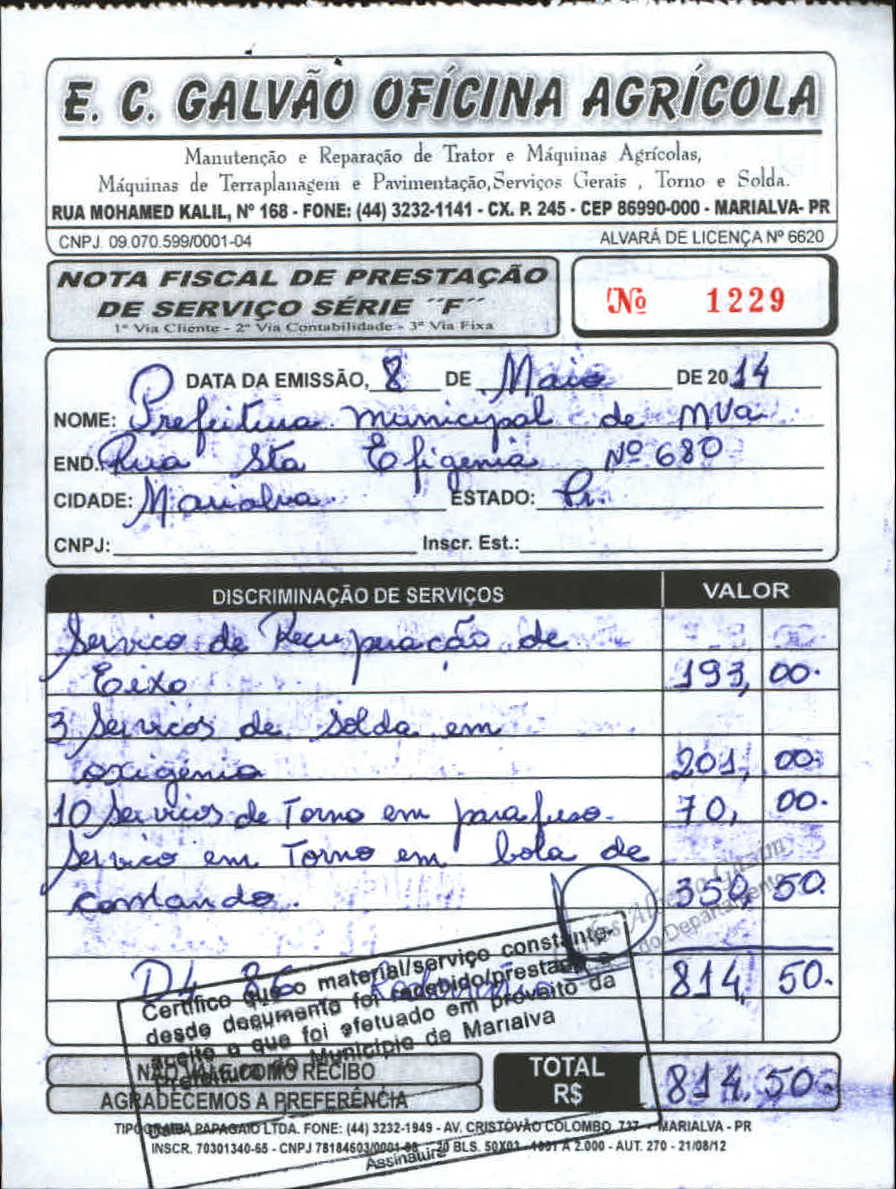 E. C. GALVÃO OFÍCINA AGRÍCOLA
Manutenção e Reparação de Trator e Máquinas Agrícolas,
Máquinas de Terraplanagem e Pavimentação,Serviços Gerais , Torno e Solda.
RUA MOHAMED KALIL, Nº 168 - FONE: (44) 3232-1141 - CX. P. 245 - CEP 86990-000 - MARIALVA- PR
CNPJ. 09.070.599/0001-04 ALVARÁ DE LICENÇA Nº 6620
NOTA FISCAL DE PRESTAÇÃO
DE SERVIÇO SÉRIE "F"
1ª Via Cliente - 2ª Via Contabilidade - 3ª Via Fixa
Nº 1229
DATA DA EMISSÃO, 8 DE Maio DE 2014
NOME: Prefeitura municipal de MVa
END. Rua Sta Efigenia Nº 680
CIDADE: Marialva. ESTADO: Pr.
CNPJ: Inscr. Est.:
DISCRIMINAÇÃO DE SERVIÇOS VALOR
Servico de Recuperação de
Eixo 193, 00.
3 Servicos de Solda em
oxigênio 201, 00.
10 Servicos de Torno em parafuso. 70, 00.
Servico em Torno em bola de
comando. 350, 50.
do Departamento
D4 814, 50.
Certifico que o material/serviço constante
desde documento foi recebido/prestado e
aceito e que foi efetuado em proveito da
Prefeitura do Município de Marialva
NÃO VALE COMO RECIBO
AGRADECEMOS A PREFERÊNCIA
TOTAL
R$ 814, 50
TIPOGRAFIA PAPAGAIO LTDA. FONE: (44) 3232-1949 - AV. CRISTÓVÃO COLOMBO, 737 - MARIALVA - PR
INSCR. 70301340-65 - CNPJ 78184603/0001-98 - 20 BLS. 50X03 - 1001 A 2.000 - AUT. 270 - 21/08/12
Assinatura